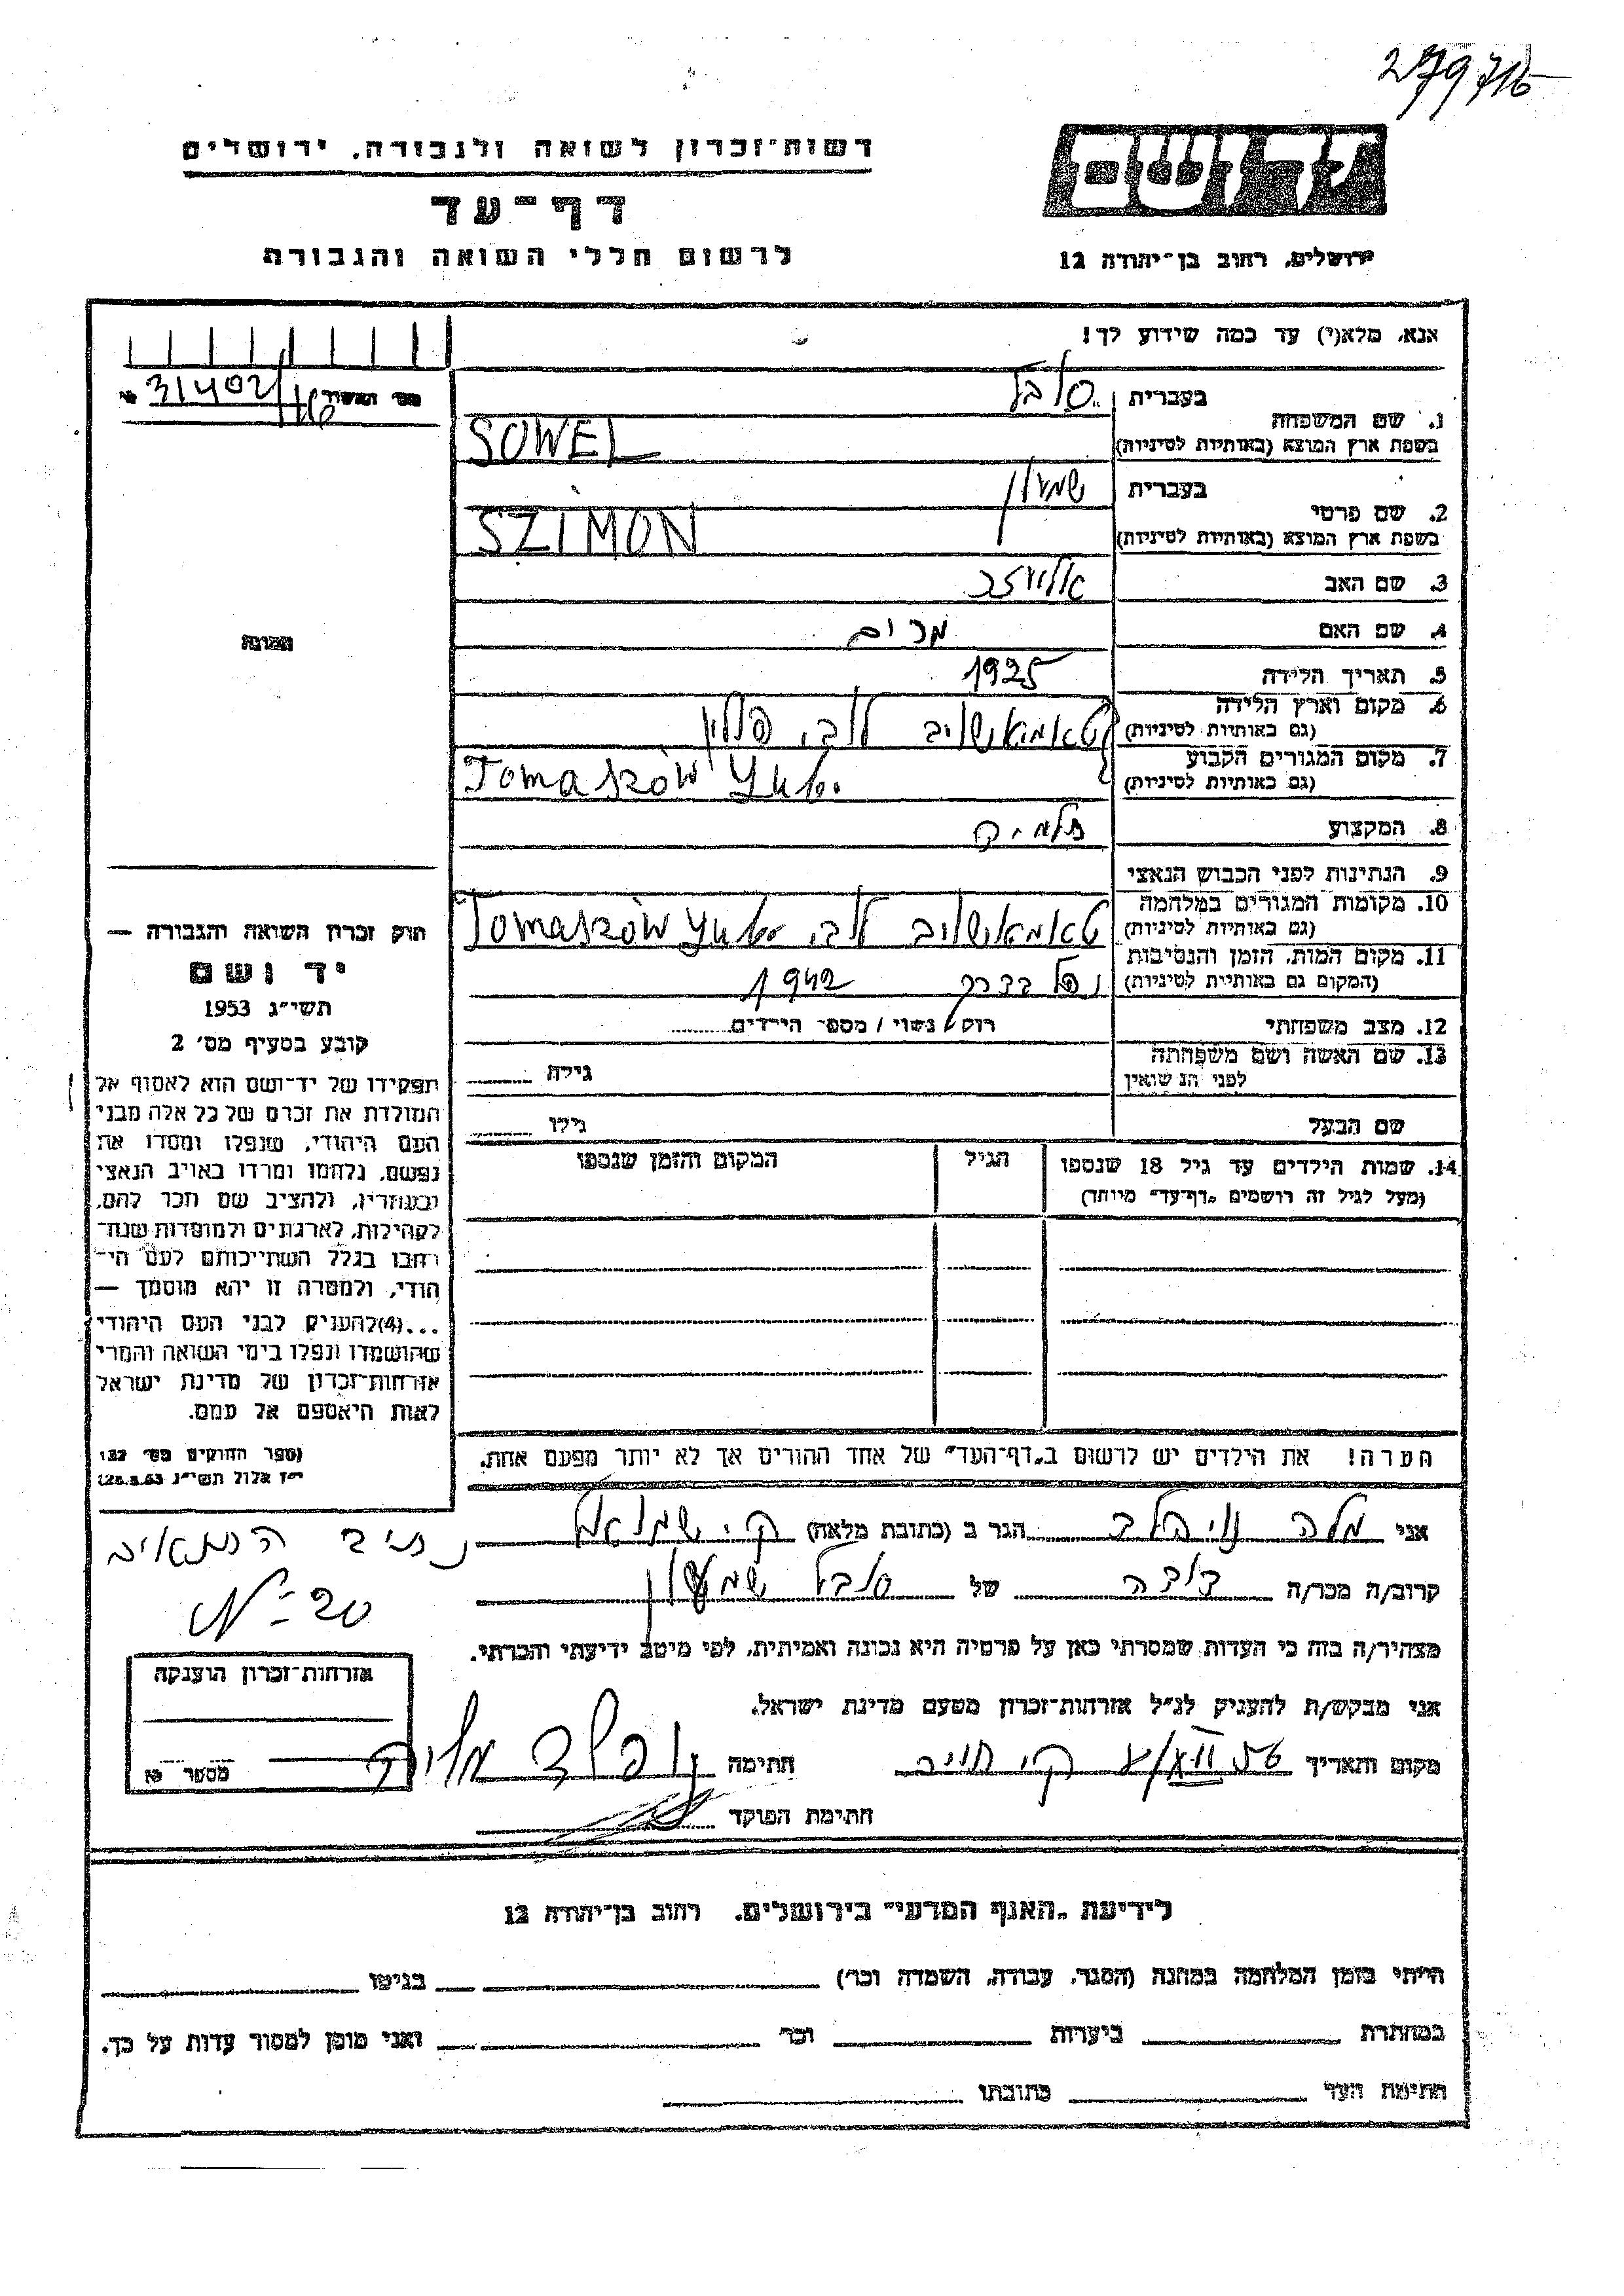 279716
רשות־זכרון לשואה ולגבורה, ירושלים
דף־עד
לרשום חללי השואה והגבורה
יד ושם
ירושלים, רחוב בן־יהודה 12
אנא, מלא(י) עד כמה שידוע לך!
31402
1. שם המשפחה
בעברית סובל
בשפת ארץ המוצא (באותיות לטיניות) SOWEL
2. שם פרטי
בעברית שמעון
בשפת ארץ המוצא (באותיות לטיניות) SZIMON
3. שם האב אליעזר
4. שם האם מרים
5. תאריך הלידה 1925
6. מקום וארץ הלידה
(גם באותיות לטיניות) לוב, פולין
7. מקום המגורים הקבוע
(גם באותיות לטיניות) Tomaszów
8. המקצוע תלמיד
9. הנתינות לפני הכבוש הנאצי
10. מקומות המגורים במלחמה
(גם באותיות לטיניות) Tomaszów
11. מקום המות, הזמן והנסיבות
(המקום גם באותיות לטיניות) נפל בדרך 1942
12. מצב משפחתי רוק / נשוי / מספר הילדים
13. שם האשה ושם משפחתה
לפני הנשואין גילה
שם הבעל גילו
14. שמות הילדים עד גיל 18 שנספו הגיל המקום והזמן שנספו
(מעל לגיל זה רושמים „דף־עד” מיוחד)
הערה! את הילדים יש לרשום ב„דף־העד” של אחד ההורים אך לא יותר מפעם אחת.
תמונה
חוק זכרון השואה והגבורה —
יד ושם
תשי״ג 1953
קובע בסעיף מס׳ 2
תפקידו של יד־ושם הוא לאסוף אל
המולדת את זכרם של כל אלה מבני
העם היהודי, שנפלו ומסרו את
נפשם, נלחמו ומרדו באויב הנאצי
ובעוזריו, ולהציב שם וזכר להם,
לקהילות, לארגונים ולמוסדות שנח־
רבו בגלל השתייכותם לעם הי־
הודי, ולמטרה זו יהא מוסמך —
...(4) להעניק לבני העם היהודי
שהושמדו ונפלו בימי השואה והמרי
אזרחות־זכרון של מדינת ישראל
לאות היאספם אל עמם.
(ספר החוקים מס׳ 132
י״ז אלול תשי״ג 28.8.53)
אני מלה הגר ב (כתובת מלאה) ק. שמואל
נתיב
№ 20
קרוב/ה מכר/ה דודה של סובל שמעון
מצהיר/ה בזה כי העדות שמסרתי כאן על פרטיה היא נכונה ואמיתית, לפי מיטב ידיעתי והכרתי.
אני מבקש/ת להעניק לנ״ל אזרחות־זכרון מטעם מדינת ישראל.
מקום ותאריך חתימה
חתימת הפוקד
אזרחות־זכרון הוענקה
מספר
לידיעת „האגף המדעי” בירושלים, רחוב בן־יהודה 12
הייתי בזמן המלחמה במחנה (הסגר, עבודה, השמדה וכו׳) בגיטו
במחתרת ביערות וכו׳ ואני מוכן למסור עדות על כך.
חתימת העד כתובתו